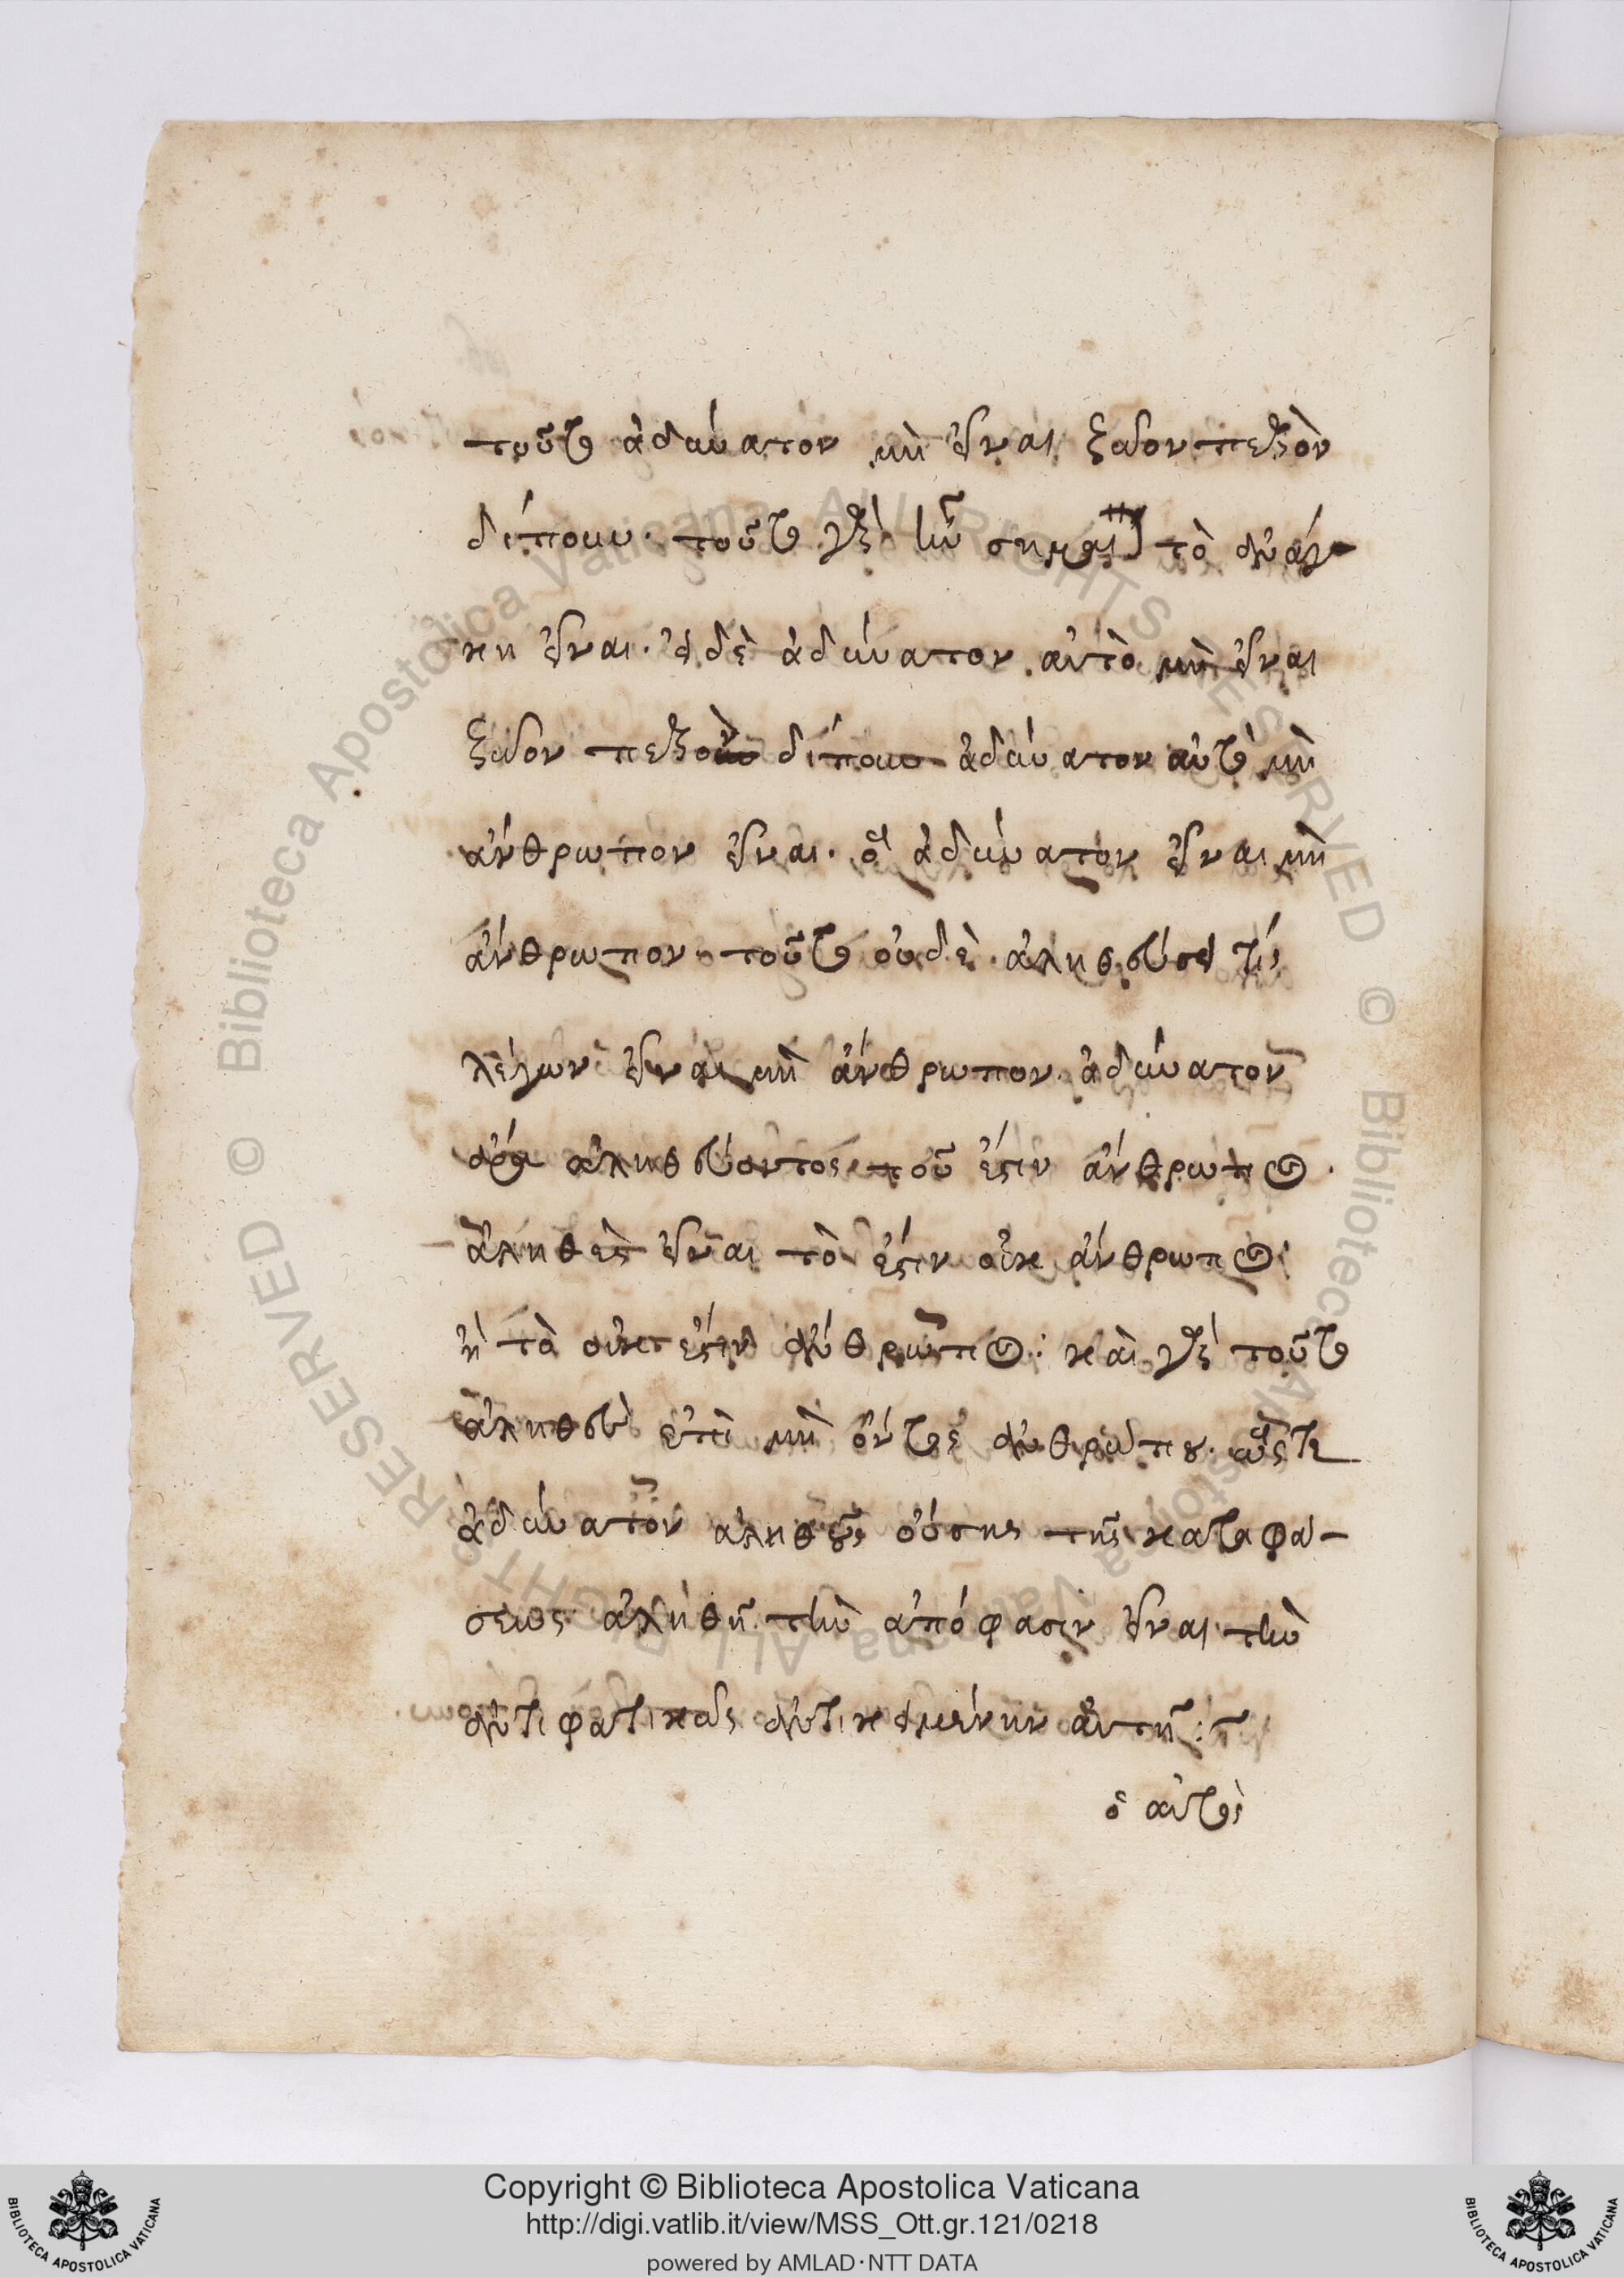 τοῦτο ἀδύνατον μὴ εἶναι ζῶον πεζὸν
δίπουν. τοῦτο γὰρ ἦν σημαίνειν τὸ ἀνάγ-
κη εἶναι. εἰ δὲ ἀδύνατον αὐτὸ μὴ εἶναι
ζῶον πεζὸν δίπουν ἀδύνατον αὐτὸ μὴ
ἄνθρωπον εἶναι. ὃ ἀδύνατον εἶναι μὴ
ἄνθρωπον. τοῦτο οὐδὲ ἀληθεύσει τίς
λέγων εἶναι μὴ ἄνθρωπον. ἀδύνατον
ἄρα ἀληθεύοντος τοῦ ἐστὶν ἄνθρωπος.
ἀληθὲς εἶναι τὸ ἐστὶν οὐκ ἄνθρωπος
ἢ τὸ οὐκ ἐστὶν ἄνθρωπος: καὶ γὰρ τοῦτο
ἀληθεύει ἐπὶ μὴ ὄντος ἀνθρώπου. ὥστε
ἀδύνατον ἀληθοῦς οὔσης τῆς καταφά-
σεως ἀληθῆ τὴν ἀπόφασιν εἶναι τὴν
ἀντιφατικῶς ἀντικειμένην αὐτῇ:
ὁ αὐτὸς
Copyright © Biblioteca Apostolica Vaticana
http://digi.vatlib.it/view/MSS_Ott.gr.121/0218
powered by AMLAD · NTT DATA
BIBLIOTECA APOSTOLICA VATICANA
BIBLIOTECA APOSTOLICA VATICANA
© Biblioteca Apostolica Vaticana ALL RIGHTS RESERVED © Biblioteca Apostolica Vaticana ALL RIGHTS RESERVED